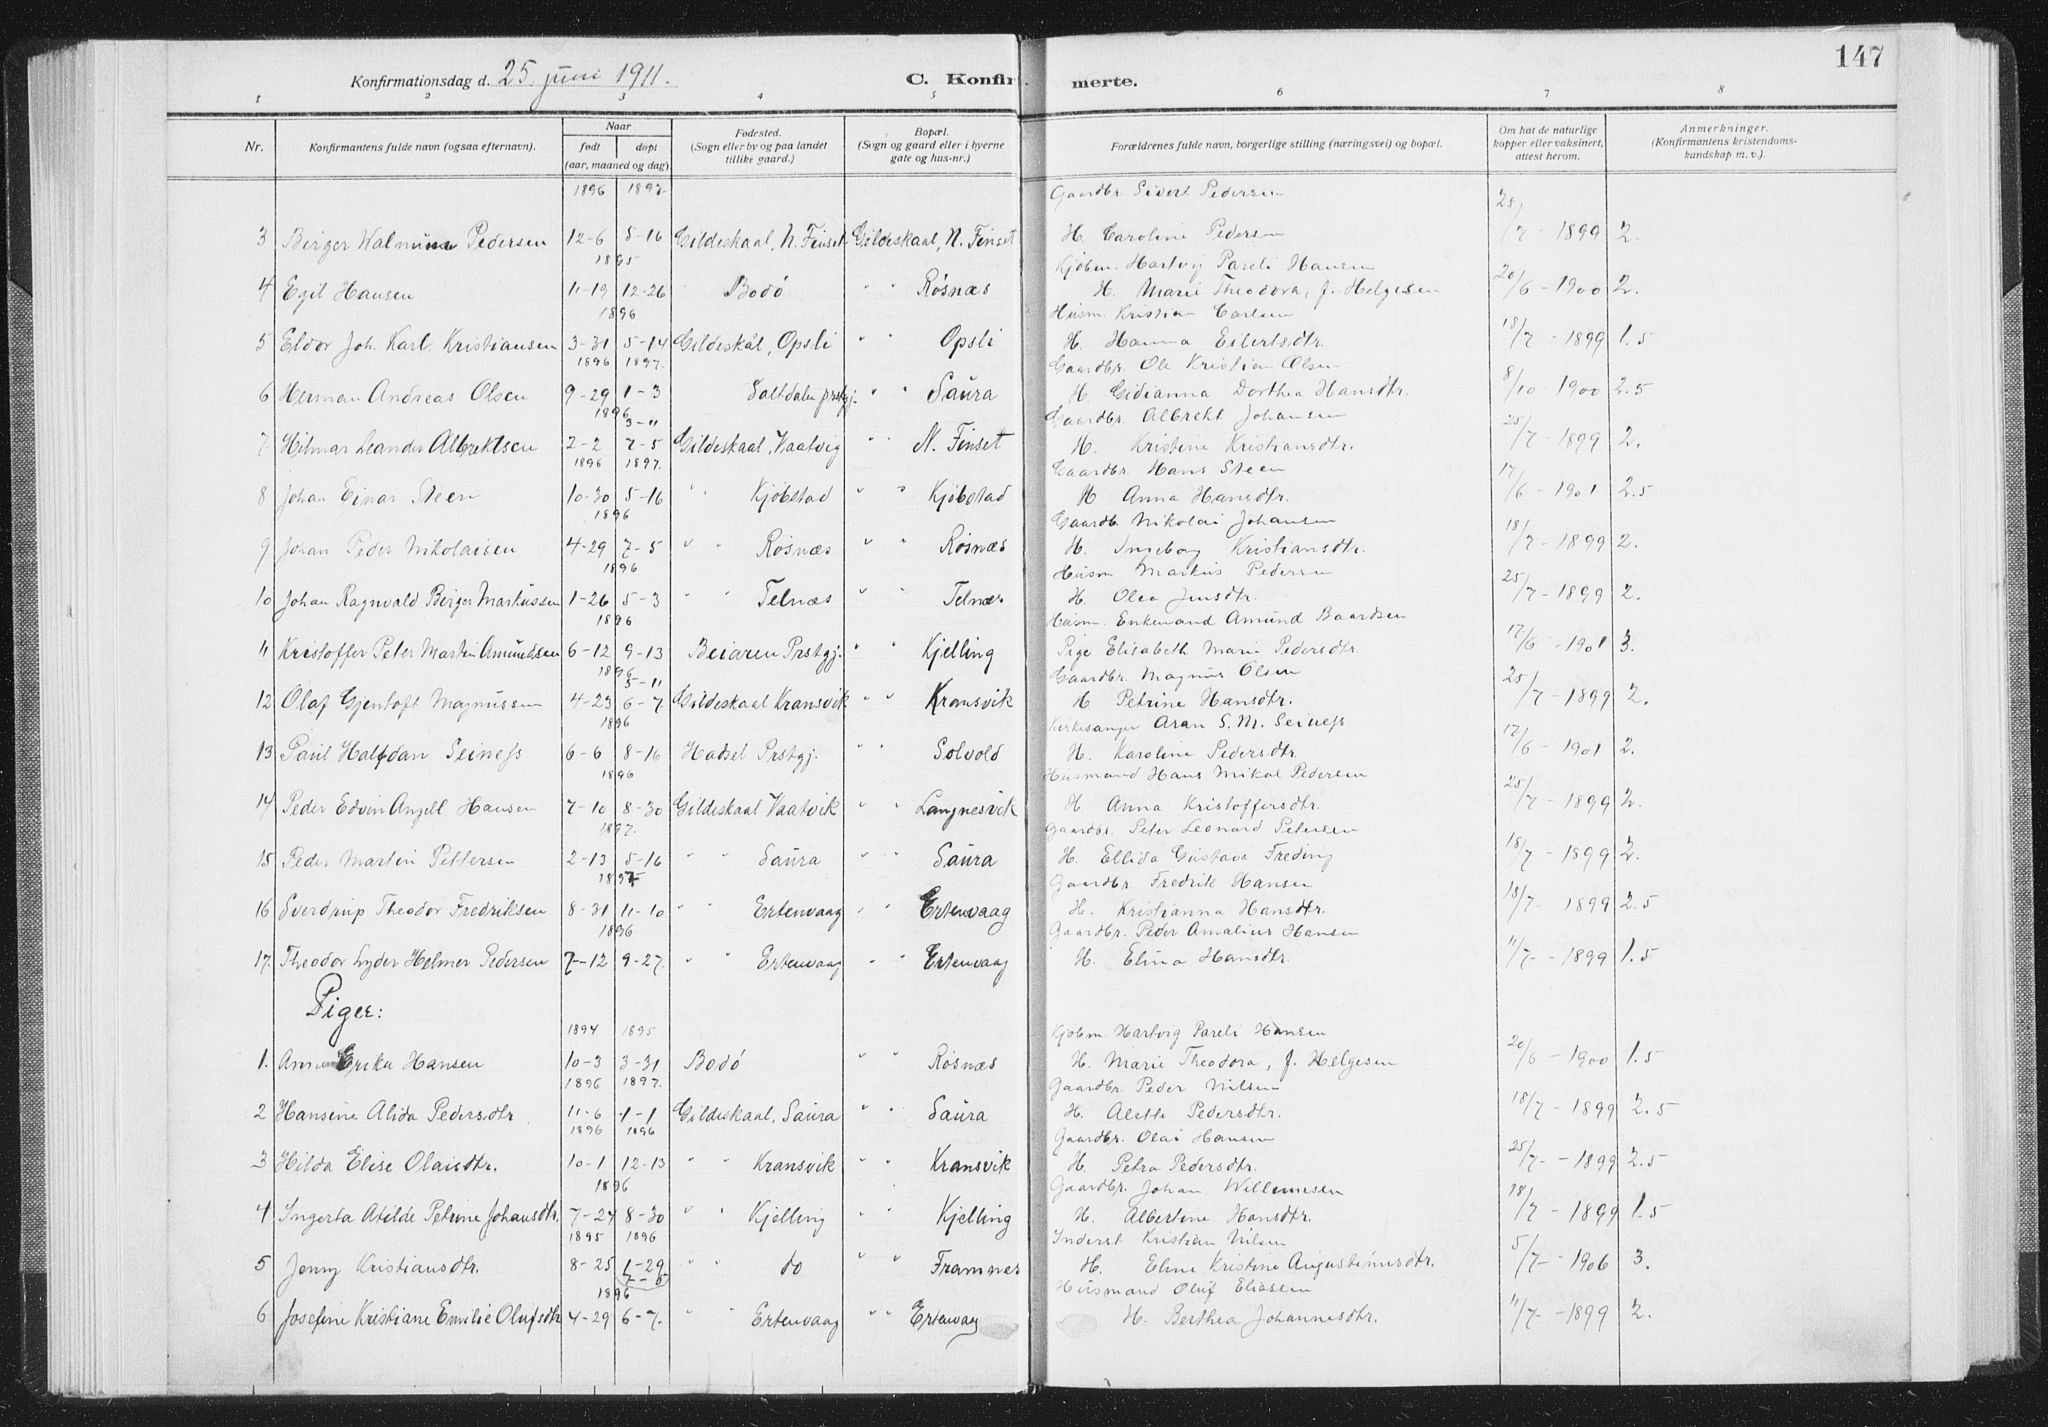 147
Konfirmationsdag d. 25. juni 1911. C. Konfir merte.
1 2 3 4 5 6 7 8
Nr. Konfirmantens fulde navn (ogsaa efternavn). Naar født døpt (aar, maaned og dag) Fødested. (Sogn eller by og paa landet tillike gaard.) Bopæl. (Sogn og gaard eller i byerne gate og hus-nr.) Forældrenes fulde navn, borgerlige stilling (næringsvei) og bopæl. Om hat de naturlige kopper eller vaksinert, attest herom. Anmerkninger. (Konfirmantens kristendoms-kundskap m. v.).
1896 1897. Gaardbr. Sivert Pedersen
3 Birger Walmine Pedersen 12-6 5-16 Gildeskaal, N. Finset Gildeskaal, N. Finset H. Caroline Pedersen 25/7 - 1899 2.
1895 Kjøbm. Hartvig Pareli Hansen
4 Egil Hansen 11-19 12-26 Bodó " " Røsnæs H. Marie Theodora, f. Helgesen 20/6 - 1900 2.
1896 Husm. Kristian Carlsen
5 Eldor Joh. Karl. Kristiansen 3-31 5-14 Gildeskål, Opsli " " Opsli H. Hanna Eilertsdtr. 18/7 - 1899 1.5
1896 1897. Gaardbr. Ole Kristian Olsen
6 Herman Andreas Olsen 9-29 1-3 Saltdalen prstgj. " " Saura H. Gidianna Dorthea Hansdtr. 8/10 - 1900 2.5
1896 3-11 Gaardbr. Albrekt Johansen
7 Hilmar Leander Albrektsen 2-2 7-5 Gildeskaal, Vaatvig " " N. Finset H. Kristine Kristiansdtr. 25/7 - 1899 2.
1896 1897. Gaardbr. Hans Steen
8 Johan Einar Steen 10-30 5-16 " " Kjøbstad " " Kjøbstad H Anna Hansdtr. 17/6 - 1901 2.5
1896 Gaardb. Nikolai Johansen
9 Johan Peder Nikolaisen 4-29 7-5 " " Røsnæs " " Røsnæs H. Ingeborg Kristiansdtr. 18/7 - 1899 2.
1896 Husm Markus Pedersen
10 Johan Ragnvald Birger Markussen 1-26 5-3 " " Telnæs " " Telnæs H. Olea Jensdtr. 25/7 - 1899 2.
1896 Husm. Enkemand Amund Baardsen
11 Kristoffer Peter Martin Amundsen 6-12 9-13 Beiaren Prstgj. " " Kjelling Pige Elisabeth Marie Pedersdtr. 17/6 - 1901 3.
1896 5-11 Gaardbr. Magnus Olsen
12 Olaf Gjentoft Magnussen 4-23 6-7 Gildeskaal Kransvik " " Kransvik H Petrine Hansdtr. 25/7 - 1899 2.
1896 Kirkesanger Aran S. M. Seiness
13 Paul Halfdan Seiness 6-6 8-16 Hadsel Prstgj. " " Solvold H. Karoline Pedersdtr. 17/6 - 1901 2.
1896 Husmand Hans Mikal Pedersen
14 Peder Edvin Angell Hansen 7-10 8-30 Gildeskaal Vaatvik " " Langnesvik H. Anna Kristoffersdtr. 25/7 - 1899 2.
1897. Gaardbr. Peter Leonard Petersen
15 Peder Martin Pettersen 2-13 5-16 " " Saura " " Saura H. Ellida Gustava Freding 18/7 - 1899 2.
1897 Gaardbr. Fredrik Hansen
16 Sverdrup Theodor Fredriksen 8-31 11-10 " " Ertenvaag " " Ertenvaag H. Kristianna Hansdtr. 18/7 - 1899 2.5
1896 Gaardbr. Peder Amalius Hansen
17. Theodor Lyder Helmer Pedersen 7-12 9-27. " " Ertenvaag " " Ertenvaag H. Elina Hansdtr. 11/7 - 1899 1.5
Piger:
1894 1895 Kjøbm. Hartvig Pareli Hansen
1. Anna Erika Hansen 10-3 3-31 Bodó " " Røsnæs H. Marie Theodora, f. Helgesen 20/6 - 1900 1.5
1896 1897. Gaardbr. Peder Nilsen
2 Hansine Alida Pedersdtr 11-6 1-1 Gildeskaal, Saura " " Saura H. Alette Pedersdtr. 18/7 - 1899 2.5
1896 1896 Gaardbr. Olai Hansen
3 Hilda Elise Olaisdtr. 10-1 12-13 " " Kransvik " " Kransvik H. Petra Pedersdtr. 25/7 - 1899 2.5
1896 Gaardbr. Johan Willumsen
4 Ingerta Atilde Petrine Johansdtr. 7-24 8-30 " " Kjelling " " Kjelling H. Albertine Hansdtr. 18/7 - 1899 1.5
1895 1896 Inderst Kristian Nilsen
5 Jenny Kristiansdtr. 8-25 1-29 " " do " " Framnes H. Eline Kristine Augustinusdtr. 5/7 - 1906 3.
7-5 1896 Husmand Oluf Eliasen
6. Josefine Kristiane Emilie Olufsdtr 4-29 6-7. " " Ertenvaag " " Ertenvaag H. Berthea Johannesdtr. 11/7 - 1899 2.